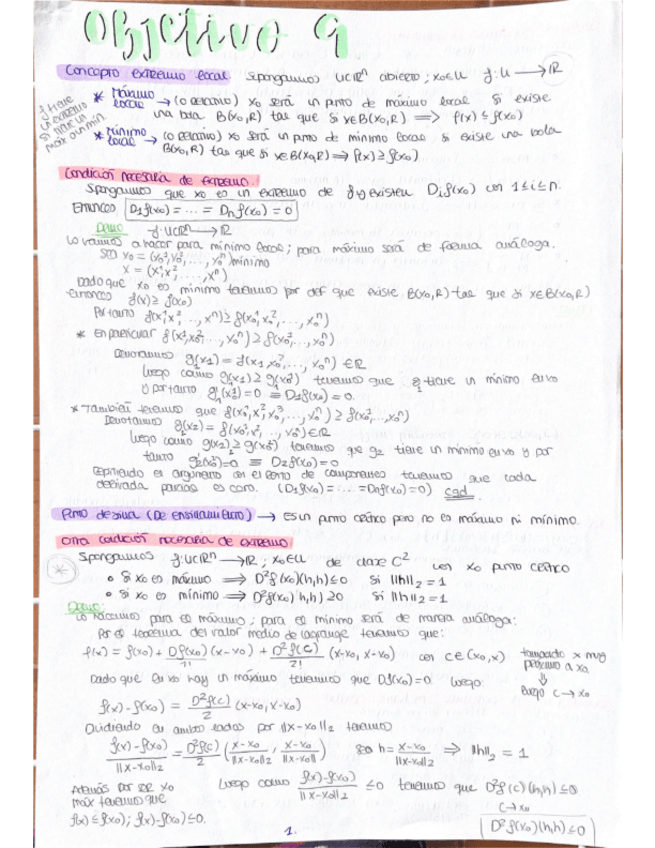 Objetivo 9
Concepto extremo local Supongamos U⊂ℝⁿ abierto ; x₀∈U f: U → ℝ
f tiene un extremo si tiene un máx o un mín
* Máximo local → (o relativo) x₀ será un punto de máximo local si existe
una bola B(x₀,R) tal que si x∈B(x₀,R) ⟹ f(x) ≤ f(x₀)
* Mínimo local → (o relativo) x₀ será un punto de mínimo local si existe una bola
B(x₀,R) tal que si x∈B(x₀,R) ⟹ f(x) ≥ f(x₀)
Condición necesaria de extremo.
Supongamos que x₀ es un extremo de f y existen Dᵢf(x₀) con 1≤i≤n.
Entonces D₁f(x₀) = ... = Dₙf(x₀) = 0
Demo f: U⊂ℝⁿ → ℝ
Lo vamos a hacer para mínimo local; para máximo será de forma análoga.
Sea x₀ = (x₀¹, x₀², ..., x₀ⁿ) mínimo
x = (x¹, x², ..., xⁿ)
Dado que x₀ es mínimo tenemos por def que existe B(x₀,R) tal que si x∈B(x₀,R)
entonces f(x) ≥ f(x₀)
Por tanto f(x¹, x², ..., xⁿ) ≥ f(x₀¹, x₀², ..., x₀ⁿ)
* En particular f(x¹, x₀², ..., x₀ⁿ) ≥ f(x₀¹, x₀², ..., x₀ⁿ)
Denotamos g₁(x₁) = f(x₁, x₀², ..., x₀ⁿ) ∈ ℝ
luego como g₁(x₁) ≥ g₁(x₀¹) tenemos que g₁ tiene un mínimo en x₀
y por tanto g₁'(x₀¹) = 0 ≡ D₁f(x₀) = 0.
* También tenemos que f(x₀¹, x², x₀³, ..., x₀ⁿ) ≥ f(x₀¹, ..., x₀ⁿ)
Denotamos g(x₂) = f(x₀¹, x², ..., x₀ⁿ) ∈ ℝ
luego como g(x₂) ≥ g(x₀²) tenemos que g₂ tiene un mínimo en x₀ y por
tanto g₂'(x₀²) = 0 ≡ D₂f(x₀) = 0
Repitiendo el argumento en el resto de componentes tenemos que cada
derivada parcial es cero. (D₁f(x₀) = ... = Dₙf(x₀) = 0) cqd.
Punto de silla (De ensillamiento) → Es un punto crítico pero no es máximo ni mínimo.
Otra condición necesaria de extremo
* Supongamos f: U⊂ℝⁿ → ℝ ; x₀∈U de clase C² con x₀ punto crítico
• Si x₀ es máximo ⟹ D²f(x₀)(h,h) ≤ 0 si ||h||₂ = 1
• Si x₀ es mínimo ⟹ D²f(x₀)(h,h) ≥ 0 si ||h||₂ = 1
Demo:
Lo hacemos para el máximo; para el mínimo será de manera análoga:
Por el teorema del valor medio de Lagrange tenemos que:
f(x) = f(x₀) + Df(x₀)/1! (x-x₀) + D²f(c)/2! (x-x₀, x-x₀) con c∈(x₀,x)
tomando x muy próximo a x₀
⇓
luego c → x₀
Dado que en x₀ hay un máximo tenemos que Df(x₀) = 0 luego:
f(x) - f(x₀) = D²f(c)/2 (x-x₀, x-x₀)
Dividiendo en ambos lados por ||x-x₀||₂ tenemos
f(x)-f(x₀)/||x-x₀||₂ = D²f(c)/2 (x-x₀/||x-x₀||₂, x-x₀/||x-x₀||) Sea h = x-x₀/||x-x₀||₂ ⟹ ||h||₂ = 1
Además por ser x₀ máx tenemos que
f(x) ≤ f(x₀); f(x)-f(x₀) ≤ 0.
Luego como f(x)-f(x₀)/||x-x₀||₂ ≤ 0 tenemos que D²f(c)(h,h) ≤ 0
c → x₀
D²f(x₀)(h,h) ≤ 0
1.